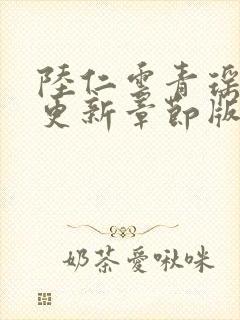 陸仁雲青瑤
更新章節版
奶茶愛啾咪